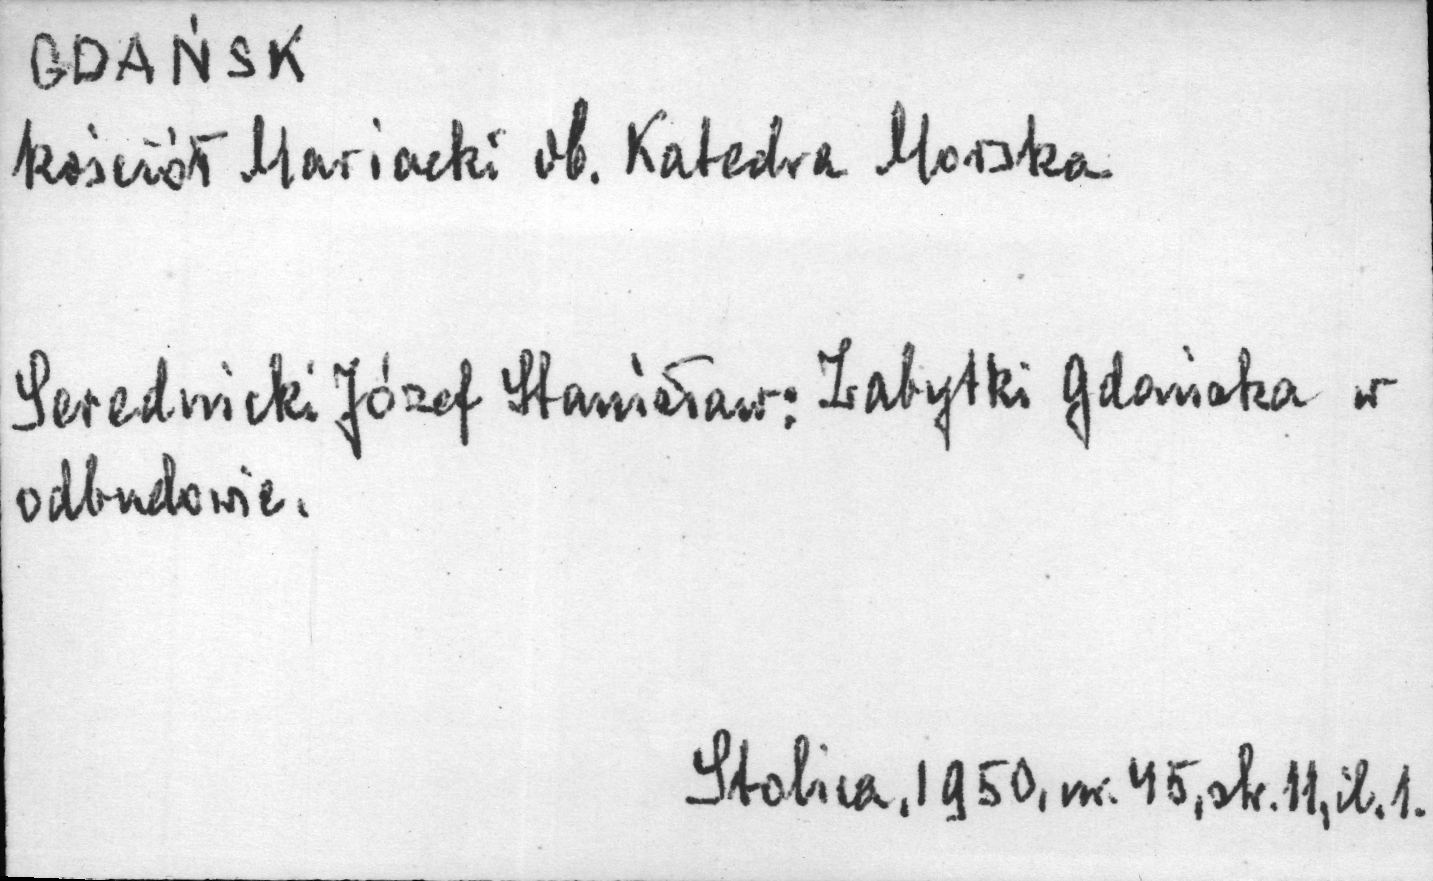 GDAŃSK
kościół Mariacki ob. Katedra Morska
Serednicki Józef Stanisław: Zabytki Gdańska w
odbudowie.
Stolica, 1950, nr. 45, str. 11, il. 1.